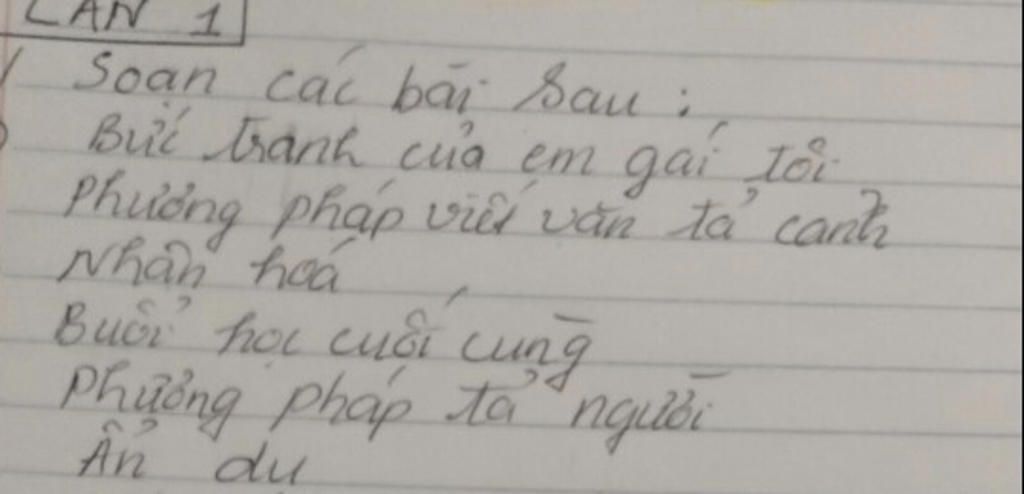 LẦN 1
Soạn các bài sau :
Bức tranh của em gái tôi
Phương pháp viết văn tả cảnh
Nhân hoá
Buổi học cuối cùng
Phương pháp tả người
Ẩn dụ